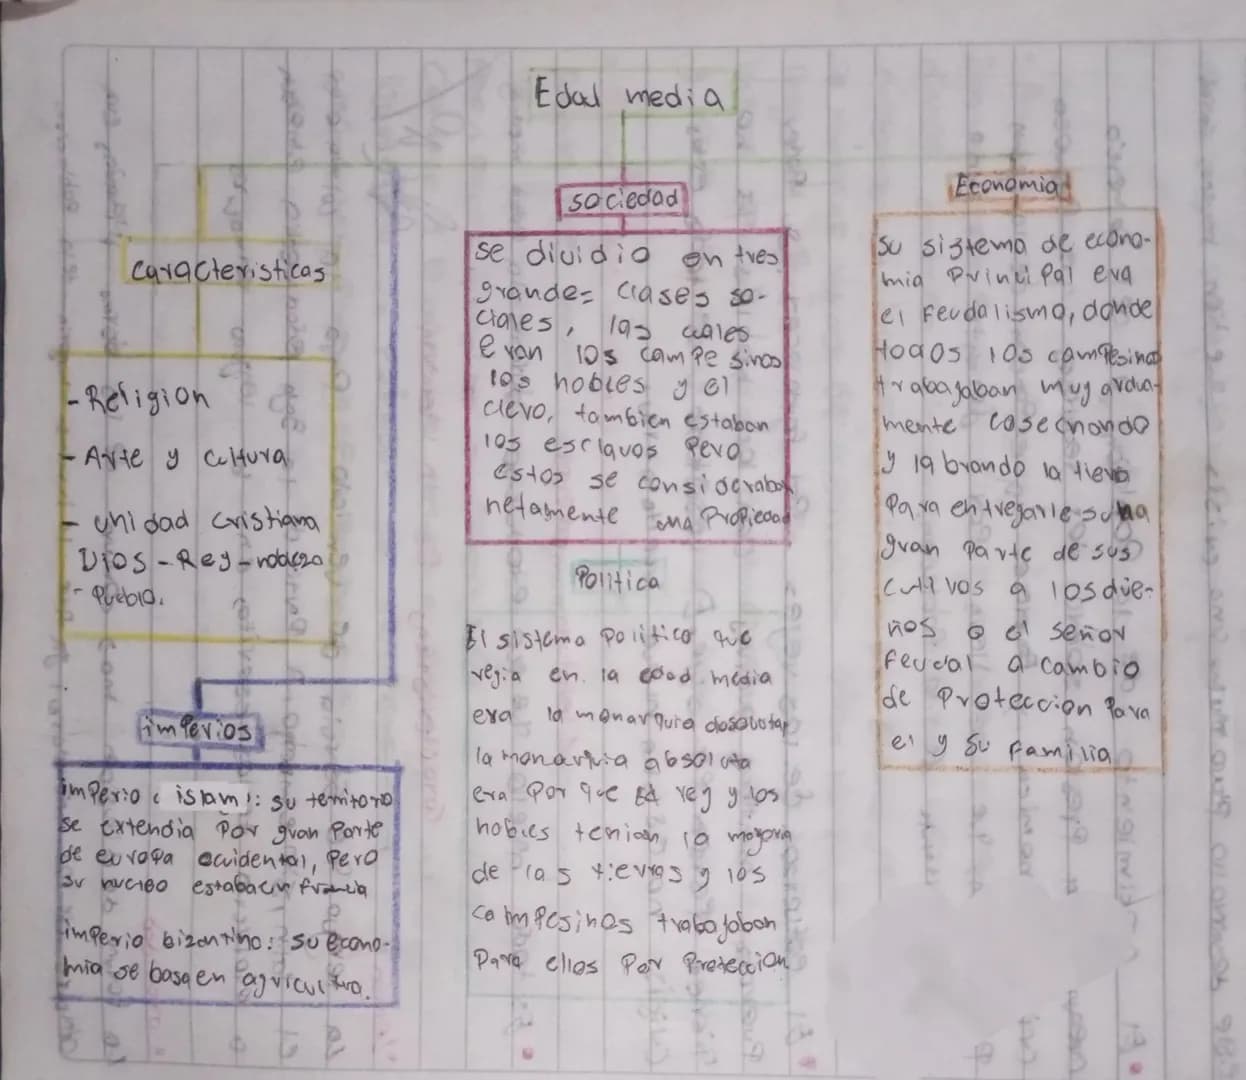 Edad media
caracteristicas
- Religion
- Arte y cultura
- unidad cristiana
Dios - Rey - nobleza
- Pueblo.
imperios
imperio islam: su territorio
se extendia por gran parte
de europa occidental, pero
su nucleo estaba en francia
imperio bizantino: su econo-
mia se basa en agricultura.
sociedad
se dividio en tres
grandes clases so-
ciales, las cuales
eran los campesinos
los nobles y el
clero, tambien estaban
los esclavos pero
estos se consideraban
netamente una propiedad
Politica
El sistema politico que
regia en la edad media
era la monarquia
la monarquia absoluta
era por que el rey y los
nobles tenian la mayoria
de las tierras y los
campesinos trabajaban
para ellos por proteccion
Economia
su sistema de econo-
mia principal era
el feudalismo, donde
todos los campesinos
trabajaban muy ardua-
mente cosechando
y labrando la tierra
para entregarle una
gran parte de sus
cultivos a los due-
ños o el señor
feudal a cambio
de proteccion para
el y su familia